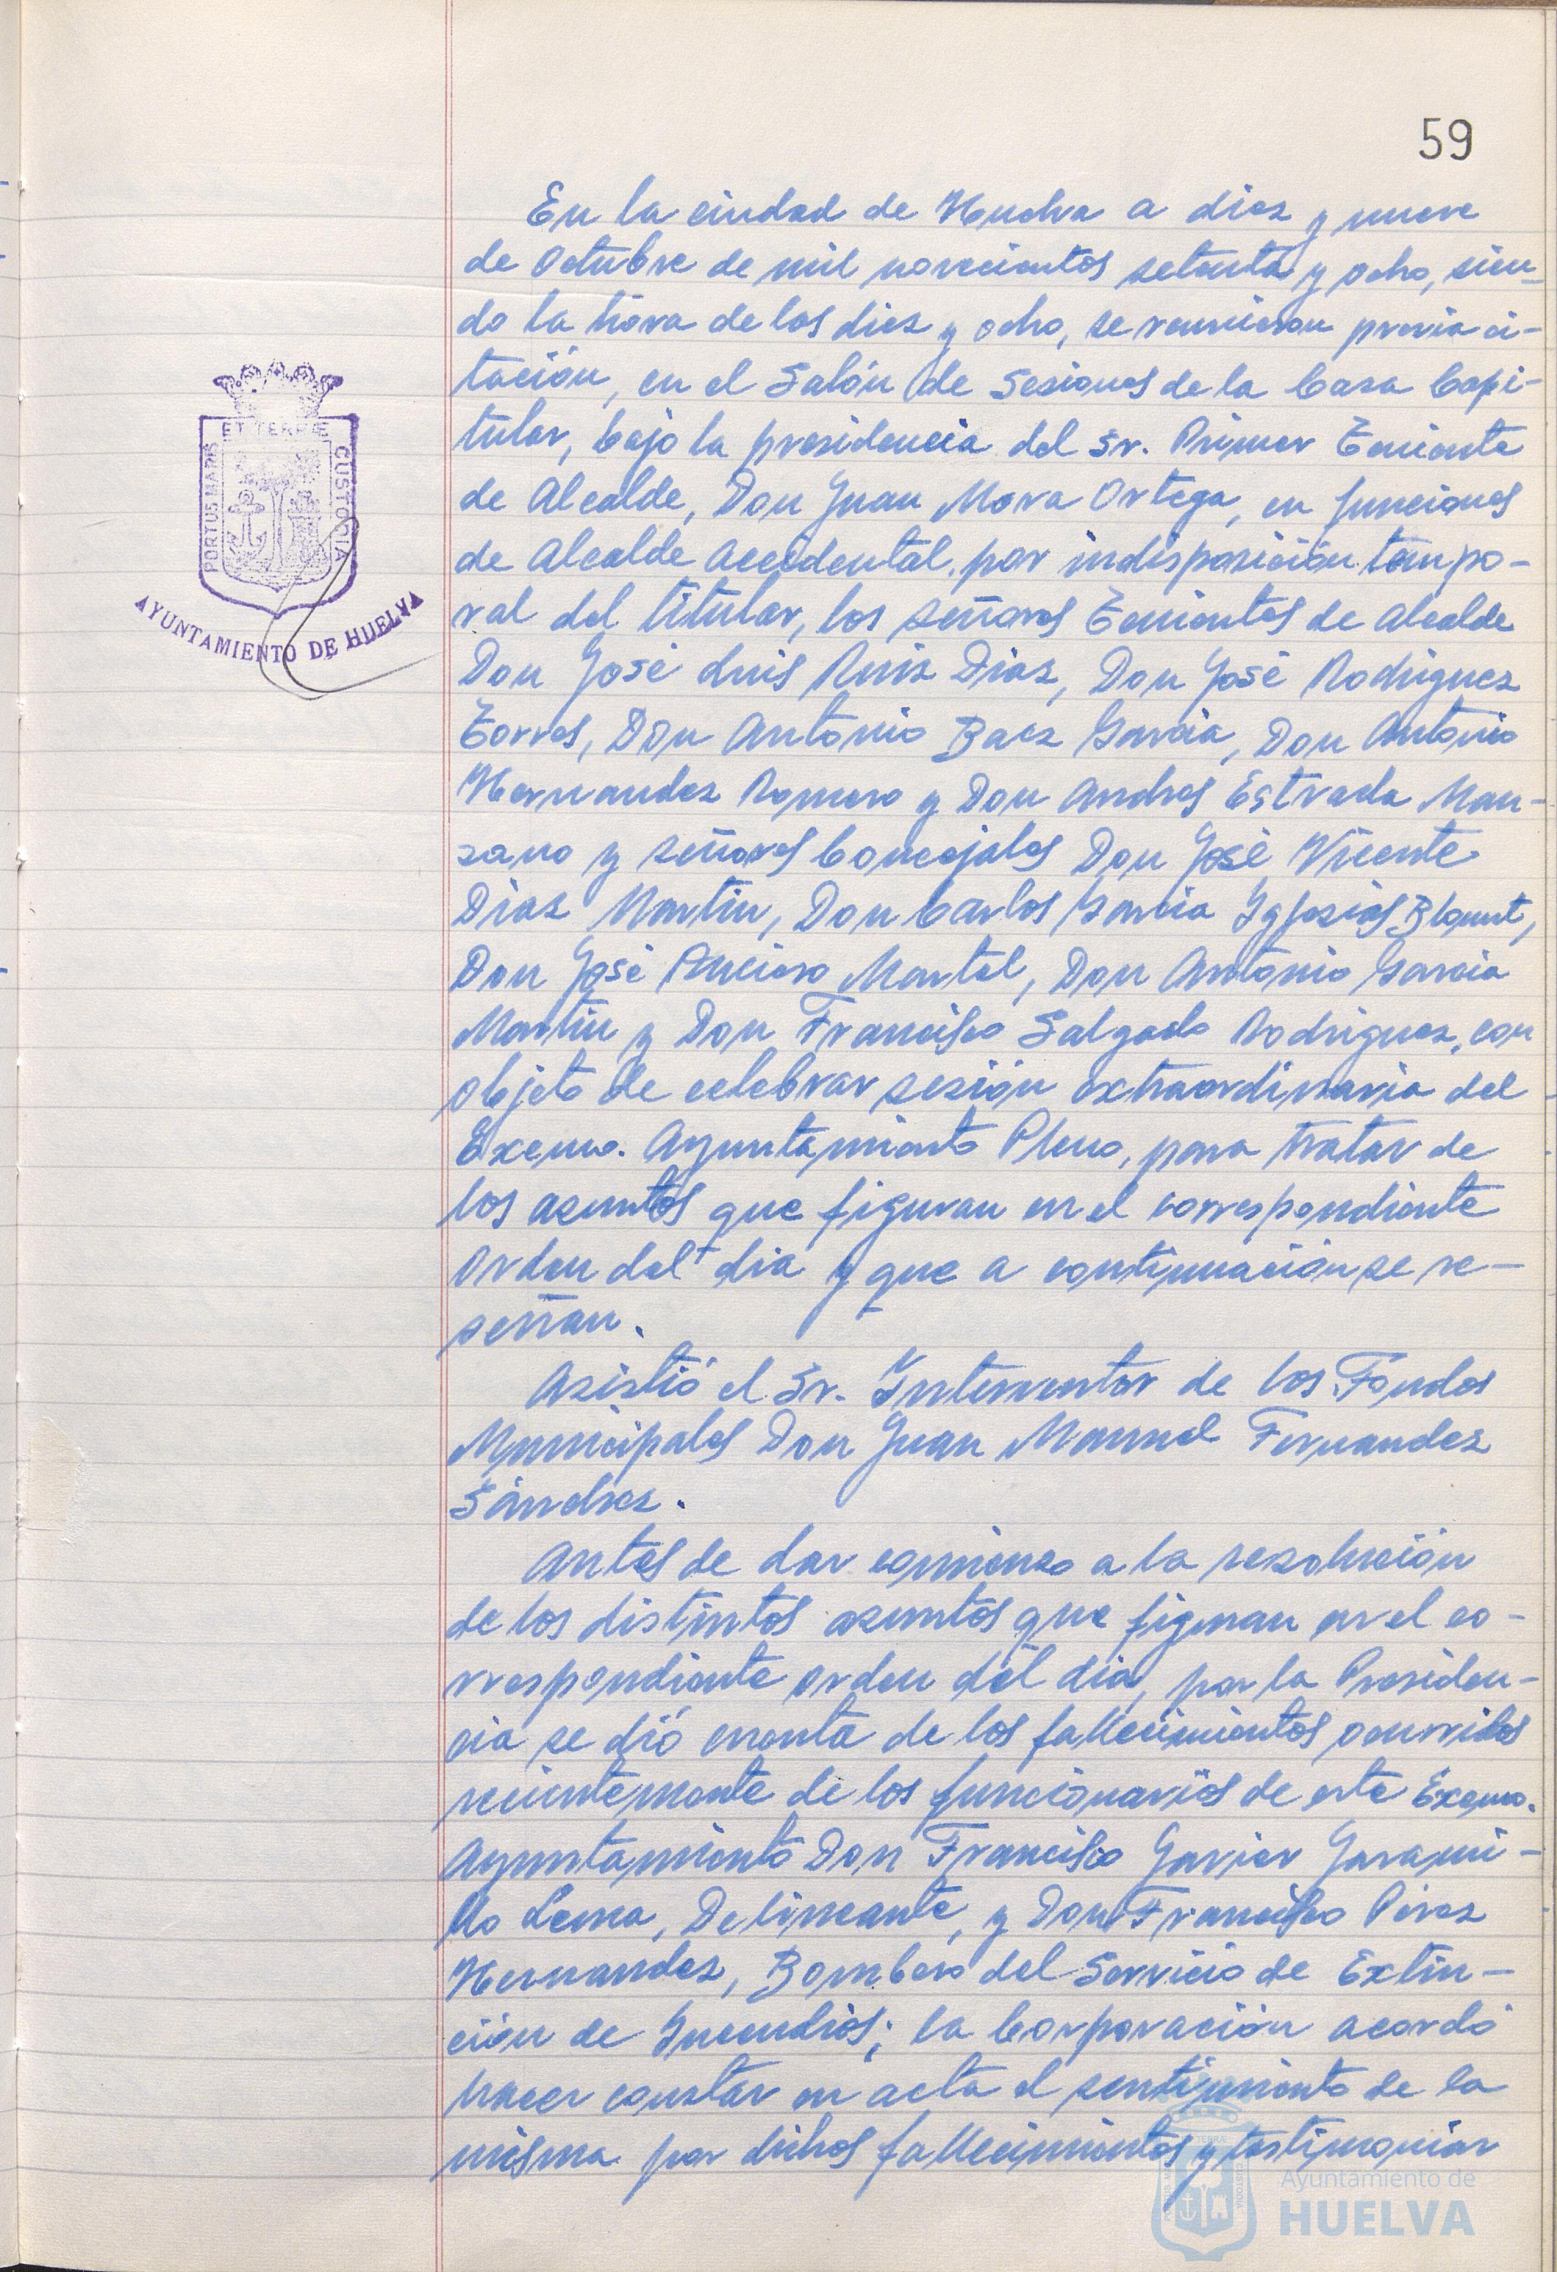 59
En la ciudad de Huelva a diez y nueve
de Octubre de mil novecientos setenta y ocho, sien-
do la hora de las diez y ocho, se reunieron previa ci-
tación, en el Salón de Sesiones de la Casa Capi-
tular, bajo la presidencia del Sr. Primer Teniente
de Alcalde, Don Juan Mora Ortega, en funciones
de Alcalde Accidental, por indisposición tempo-
ral del titular, los señores Tenientes de Alcalde
Don José Luis Ruiz Diaz, Don José Rodriguez
Torres, Don Antonio Baez Garcia, Don Antonio
Hernandez Romero y Don Andres Estrada Man-
zano y señores Concejales Don José Vicente
Diaz Martin, Don Carlos Garcia Yglesias Blount,
Don José Anciero Martel, Don Antonio Garcia
Martin y Don Francisco Salgado Rodriguez, con
objeto de celebrar sesión extraordinaria del
Excmo. Ayuntamiento Pleno, para tratar de
los asuntos que figuran en el correspondiente
orden del dia y que a continuación se re-
señan.
Asistió el Sr. Interventor de los Fondos
Municipales Don Juan Manuel Fernandez
Sánchez.
Antes de dar comienzo a la resolución
de los distintos asuntos que figuran en el co-
rrespondiente orden del dia, por la Presiden-
cia se dió cuenta de los fallecimientos ocurridos
recientemente de los funcionarios de este Excmo.
Ayuntamiento Don Francisco Javier Jarami-
llo Lema, Delineante, y Don Francisco Pérez
Hernandez, Bombero del Servicio de Extin-
ción de Incendios; la Corporación acordó
hacer constar en acta el sentimiento de la
misma por dichos fallecimientos y testimoniar
PORTUS MARIS ET TERRÆ CUSTODIA
AYUNTAMIENTO DE HUELVA
Ayuntamiento de
HUELVA